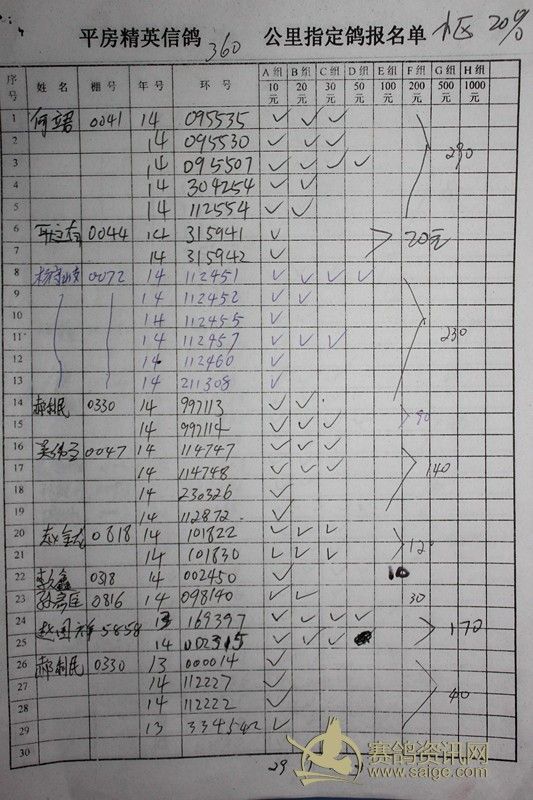 平房精英信鸽 360 公里指定鸽报名单 20%
序号 姓名 棚号 年号 环号 A组10元 B组20元 C组30元 D组50元 E组100元 F组200元 G组500元 H组1000元
1 0041 14 095535 ✓ ✓ ✓
2 14 095530 ✓ ✓ ✓
3 14 095507 ✓ ✓ ✓ ✓ 290
4 14 304254 ✓ ✓
5 14 112554 ✓ ✓
6 0044 14 315941 ✓ 20元
7 14 315942 ✓
8 0072 14 112451 ✓ ✓ ✓ ✓
9 14 112452 ✓ ✓
10 14 112455 ✓
11 14 112457 ✓ ✓ ✓ 230
12 14 112460 ✓
13 14 211308 ✓
14 郝利民 0330 14 997113 ✓ ✓
15 14 997114 ✓ ✓ ✓ 90
16 0047 14 114747 ✓ ✓ ✓
17 14 114748 ✓ ✓ ✓ 140
18 14 230326 ✓
19 14 112872 ✓
20 0818 14 101822 ✓ ✓ ✓
21 14 101830 ✓ ✓ ✓ 120
22 李鑫 14 002450 ✓ 10
23 0816 14 098140 ✓ ✓ 30
24 赵国祥 5858 13 169397 ✓ ✓ ✓ ✓ 170
25 14 002315 ✓ ✓ ✓
26 郝利民 0330 13 000014 ✓
27 14 112227 ✓
28 14 112222 ✓ 40
29 13 334542 ✓
30
29
赛鸽资讯网
www.saige.com